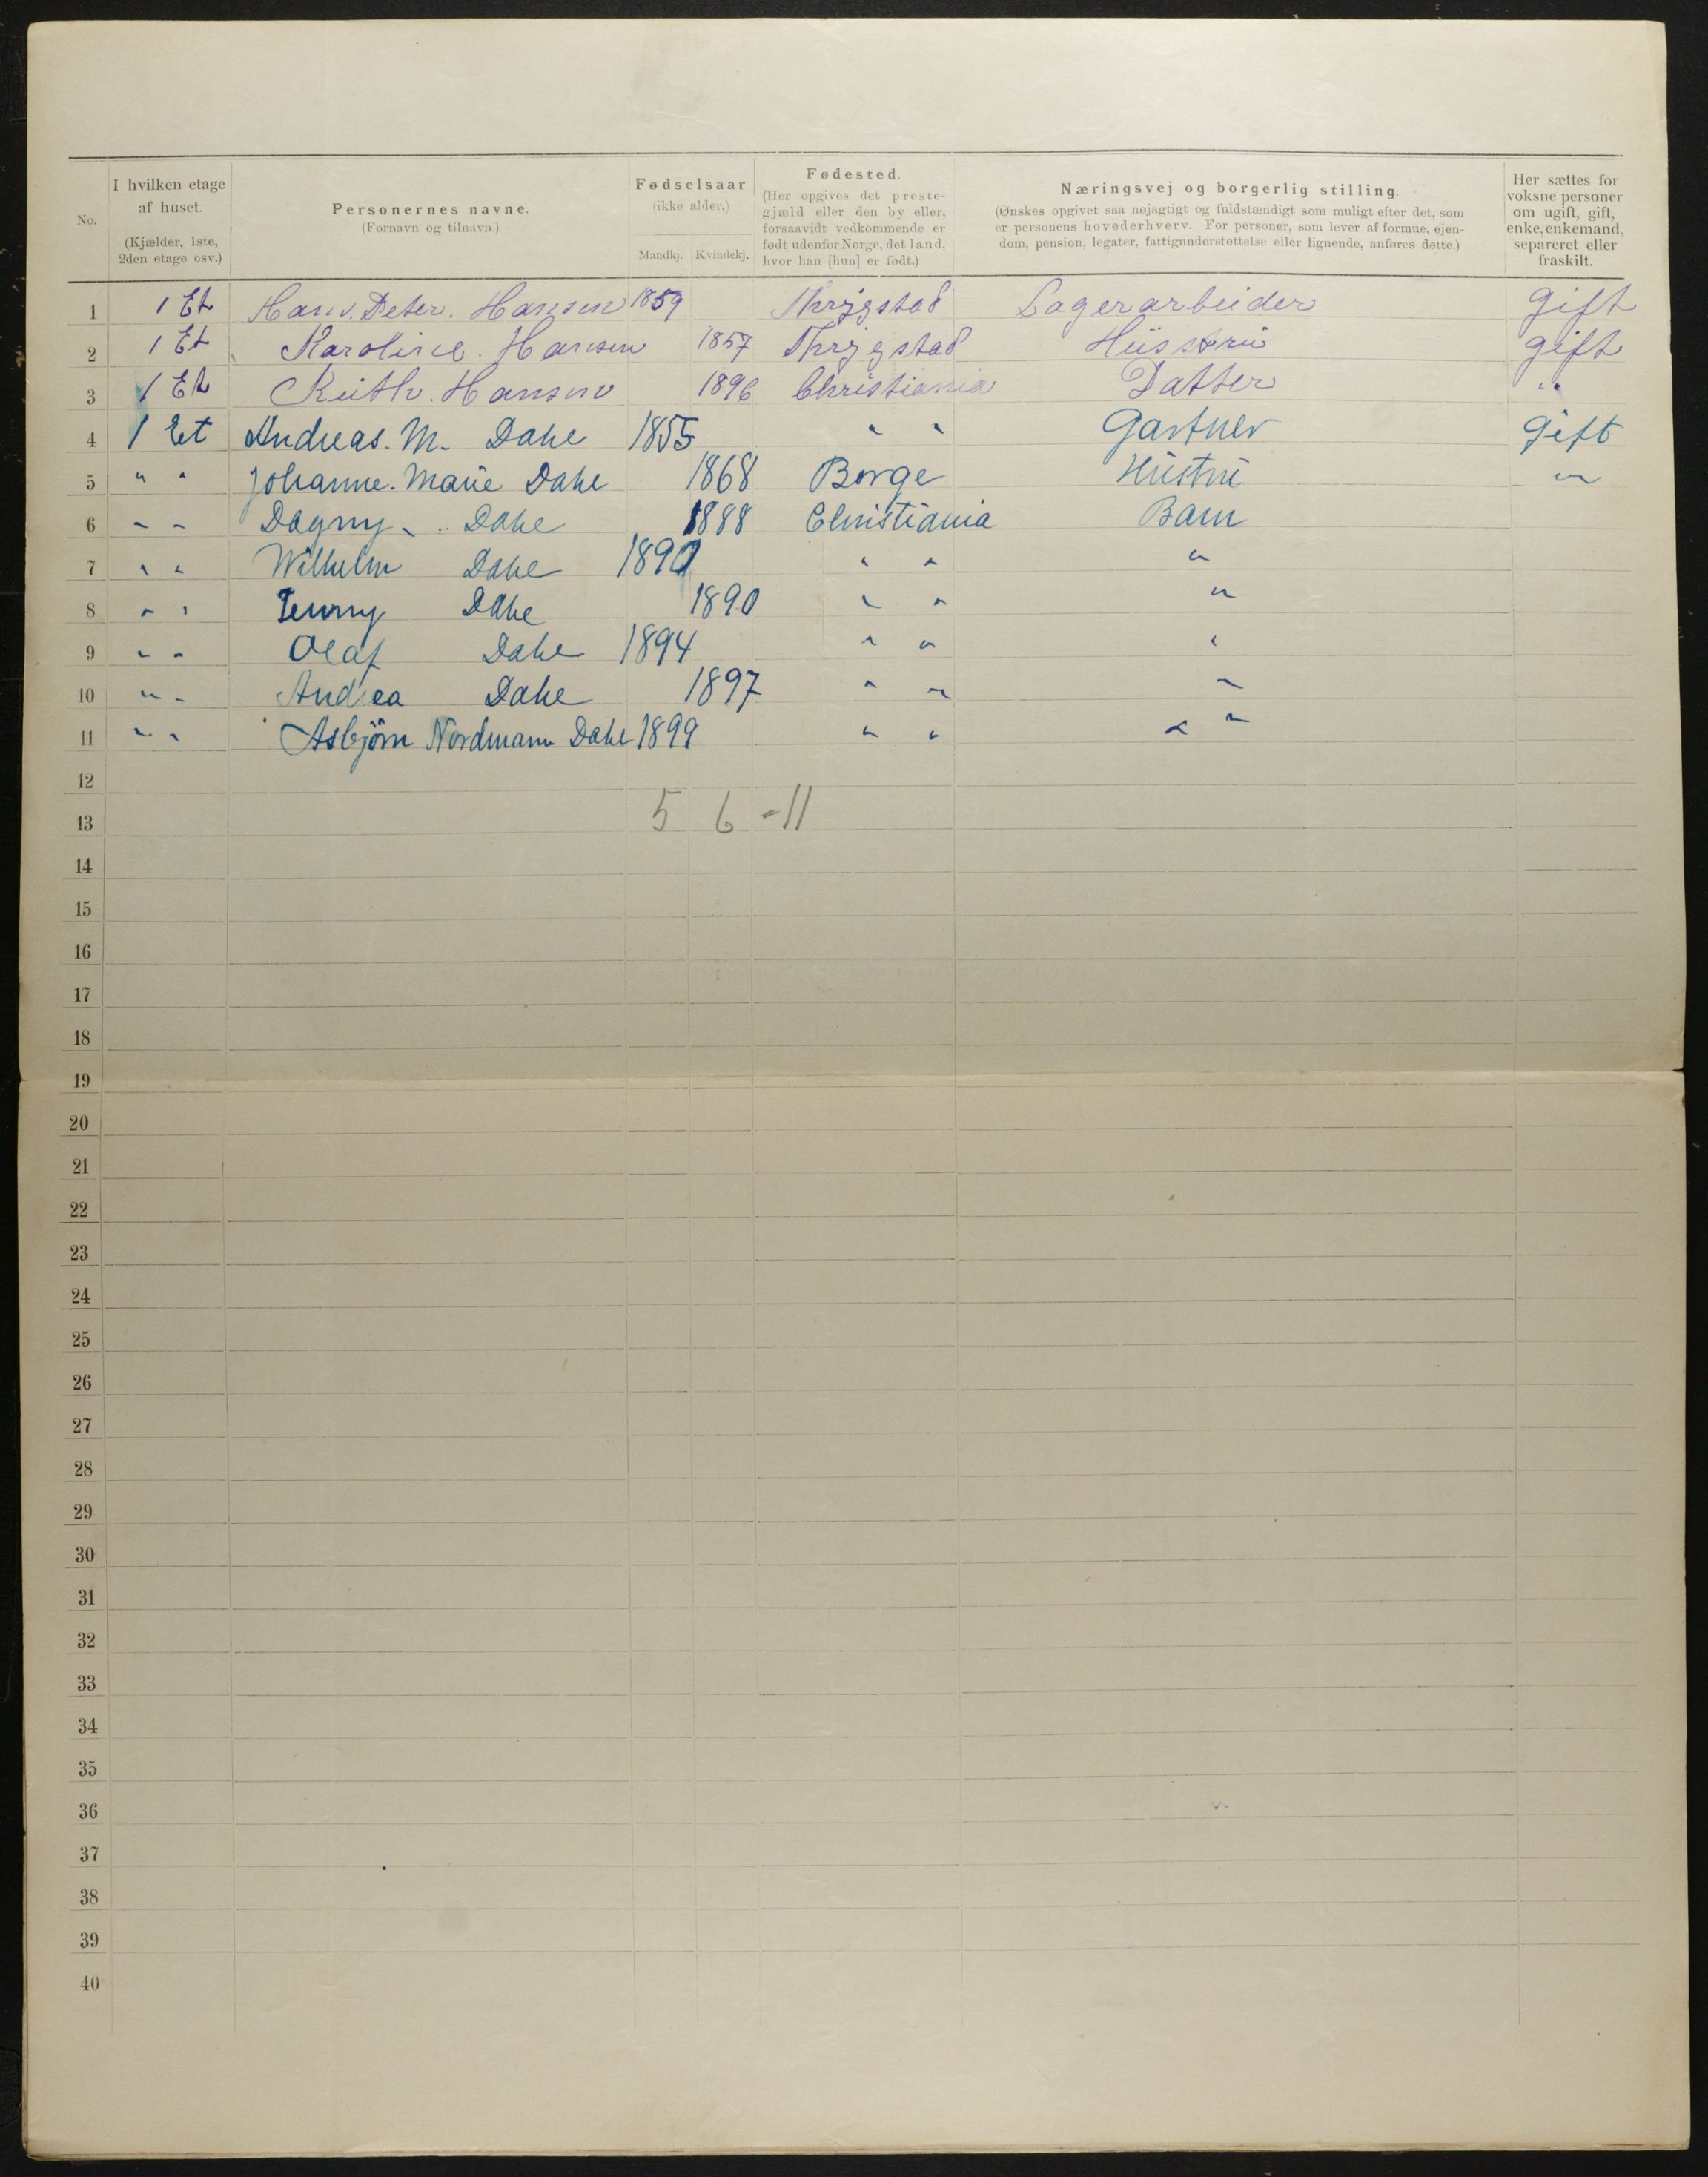 No.
I hvilken etage af huset. (Kjælder, 1ste, 2den etage osv.)
Personernes navne. (Fornavn og tilnavn.)
Fødselsaar (ikke alder.) Mandkj. Kvindekj.
Fødested. (Her opgives det prestegjæld eller den by eller, forsaavidt vedkommende er født udenfor Norge, det land, hvor han [hun] er født.)
Næringsvej og borgerlig stilling. (Ønskes opgivet saa nøjagtigt og fuldstændigt som muligt efter det, som er personens hovederhverv. For personer, som lever af formue, ejendom, pension, legater, fattigunderstøttelse eller lignende, anføres dette.)
Her sættes for voksne personer om ugift, gift, enke, enkemand, separeret eller fraskilt.
1 1 Et Hans. Peter. Hansen 1859 Thrygstad Lagerarbeider gift
2 1 Et Karoline. Hansen 1857 Thrygstad Hüsstrü gift
3 1 Et Rüth. Hansen 1896 Christiania Datter "
4 1 Et Andreas. M. Dahe 1855 " " Gartner Gift
5 " " Johanne. Marie Dahe 1868 Borge Hüstrü "
6 " " Dagny " Dahe 1888 Christiania Barn
7 " " Wilhelm Dahe 1890 " " "
8 " " Jenny Dahe 1890 " " "
9 " " Olaf Dahe 1894 " " "
10 " " Andrea Dahe 1897 " " "
11 " " Asbjørn Nordmann Dahe 1899 " " " "
12
13 5 6 -11
14
15
16
17
18
19
20
21
22
23
24
25
26
27
28
29
30
31
32
33
34
35
36
37
38
39
40